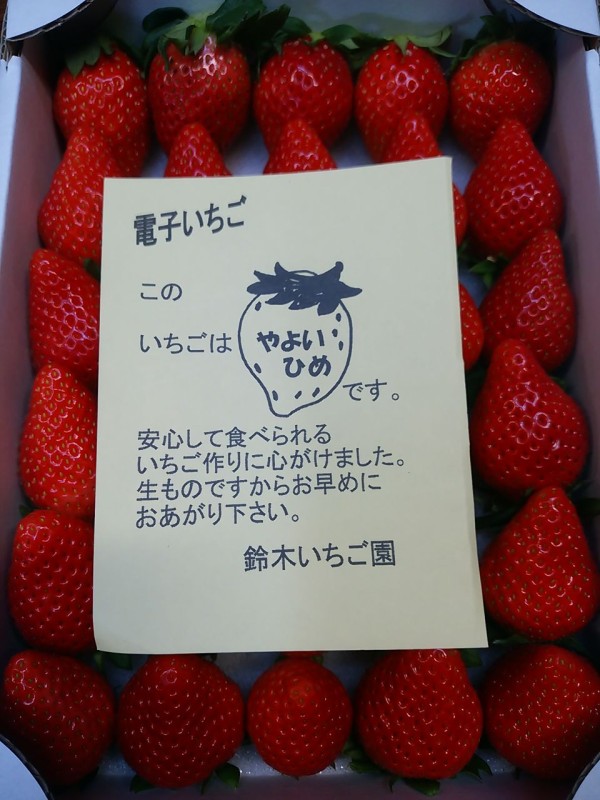 電子いちご
この
いちごは
やよい
ひめ
です。
安心して食べられる
いちご作りに心がけました。
生ものですからお早めに
おあがり下さい。
鈴木いちご園